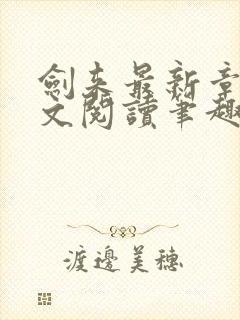 劍來最新章
文閱讀筆趣
渡邊美穗